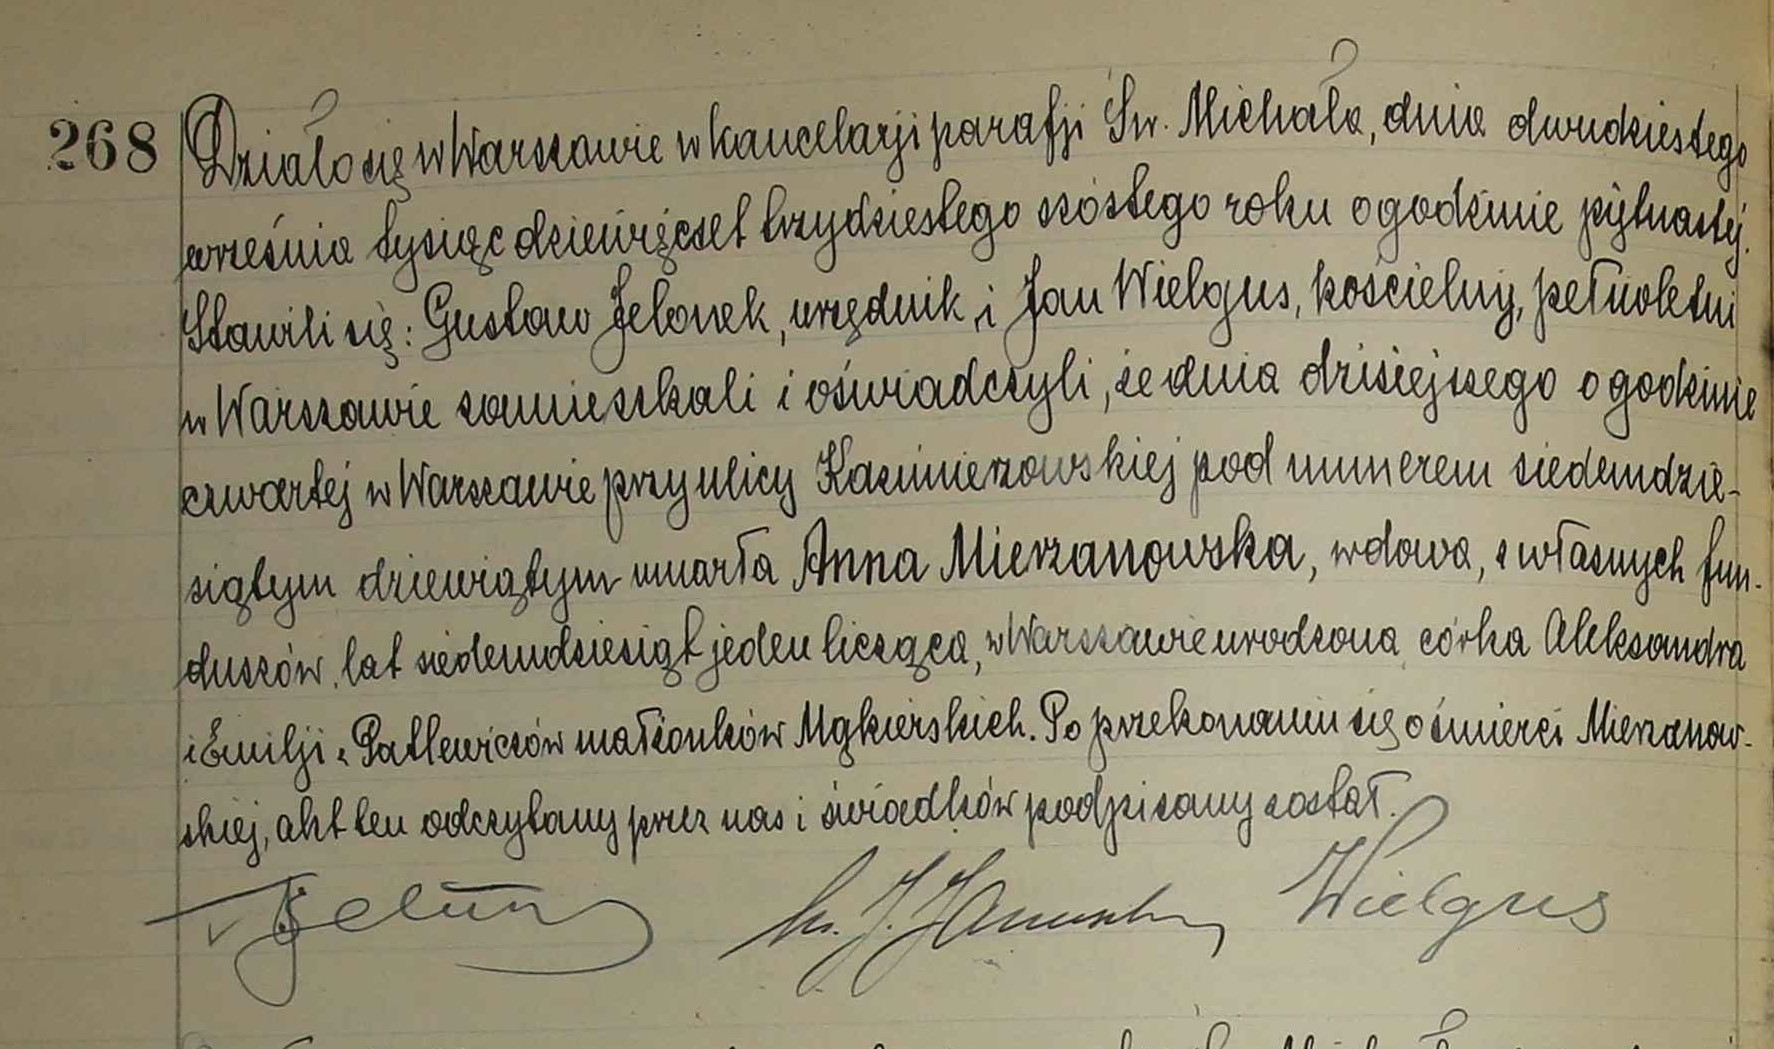 268 Działo się w Warszawie w kancelarji parafji Św. Michała, dnia dwudziestego
września tysiąc dziewięćset trzydziestego szóstego roku o godzinie piętnastej.
Stawili się: Gustaw Jelonek, urzędnik i Jan Wielgus, kościelny, pełnoletni
w Warszawie zamieszkali i oświadczyli, że dnia dzisiejszego o godzinie
czwartej w Warszawie przy ulicy Kazimierzowskiej pod numerem siedemdzie-
siątym dziewiątym umarła Anna Mierzanowska, wdowa, z własnych fun-
duszów, lat siedemdziesiąt jeden licząca, w Warszawie urodzona córka Aleksandra
i Emilji z Patlewiczów małżonków Mąkierskich. Po przekonaniu się o śmierci Mierzanow-
skiej, akt ten odczytany przez nas i świadków podpisany został.
Wielgus